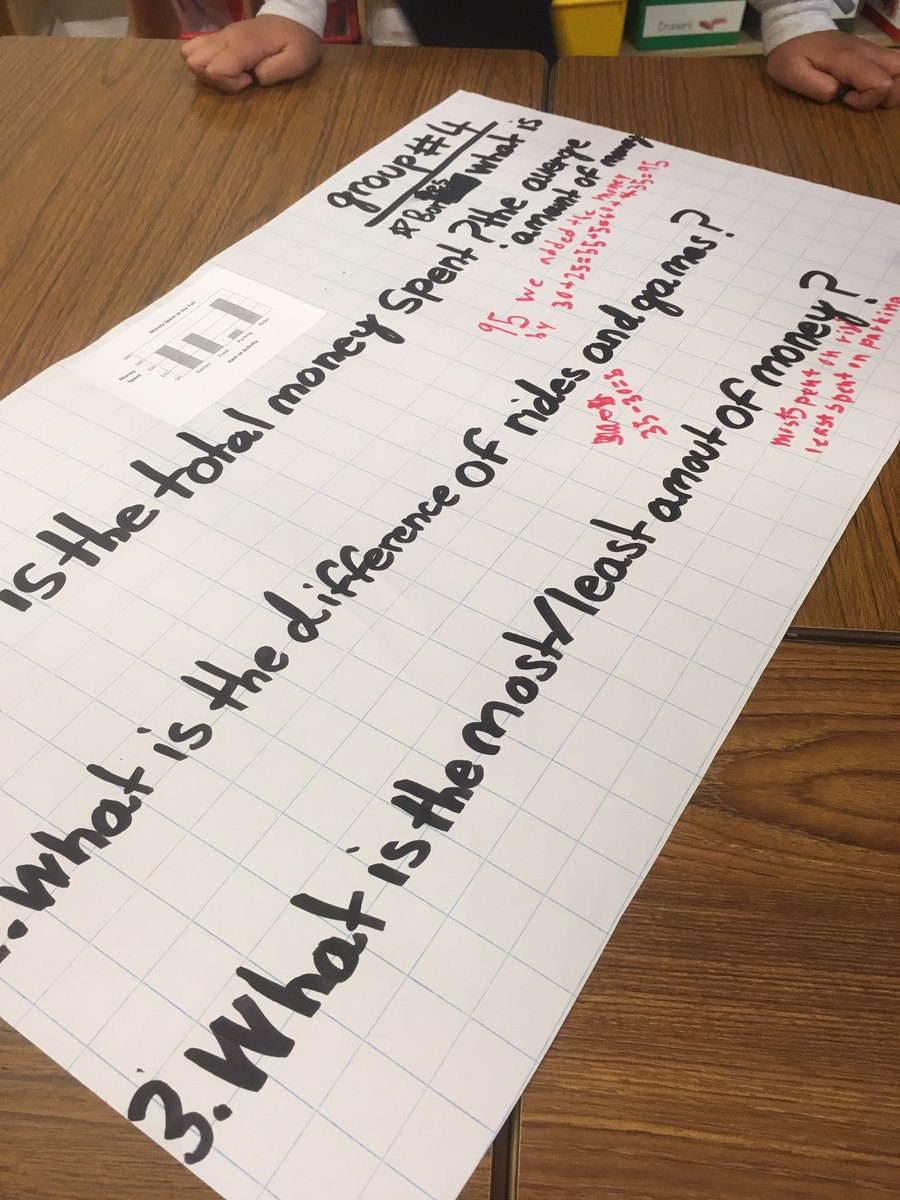 group#4
What is
the average
amount of money
is the total money spent?
95 we added the money
by 30+25=55+5=60+35=95
What is the difference of rides and games?
35-30=5
3. What is the most/least amout of money?
least spent on parking
Money Spent at the Fair
Money
Spent
$40
$30
$20
$10
$0
Games
Food
Parking
Rides
Item or Activity
Erasers